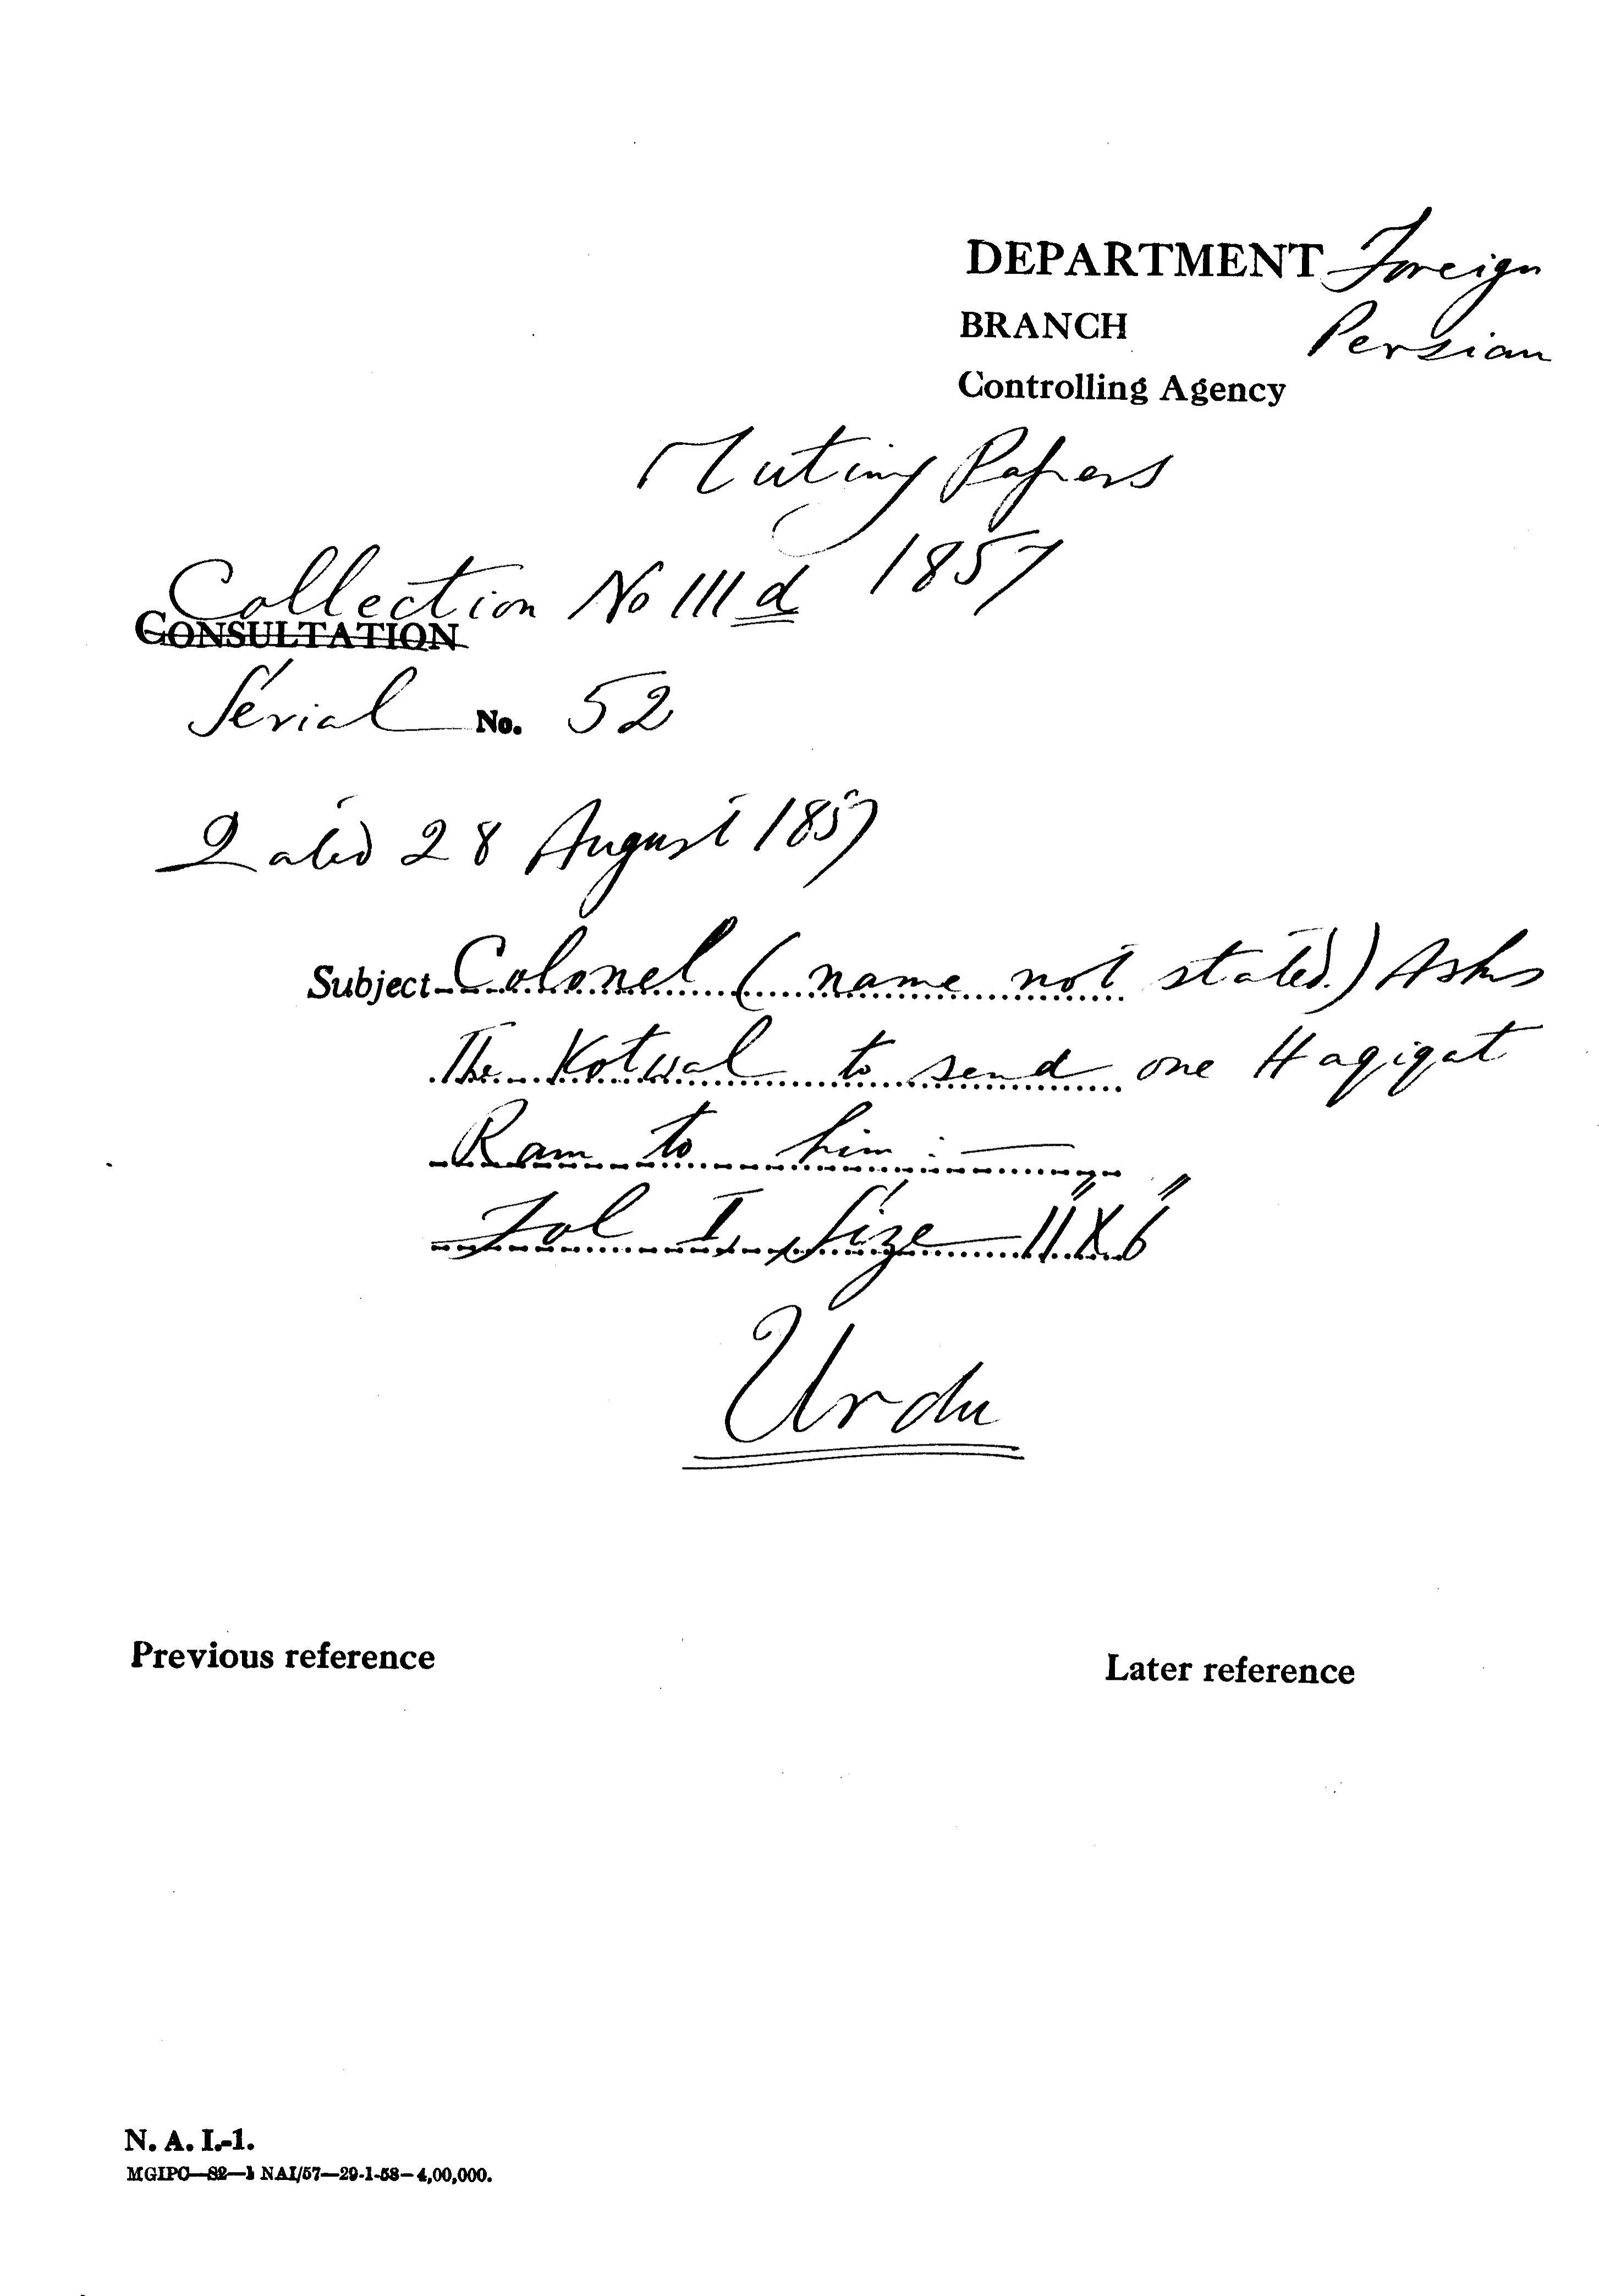 DEPARTMENT Foreign
BRANCH Persian
Controlling Agency
Mutiny Papers
Collection No III d 1857
CONSULTATION
Serial No. 52
Dated 28 August 1857
Subject Colonel (name not stated.) Asks
The Kotwal to send one Haqiqat
Ram to him :—
Fol I, Size 11" X 6"
Urdu
Previous reference Later reference
N. A. I.-1.
MGIPC—S2—1 NAI/57—29-1-58—4,00,000.